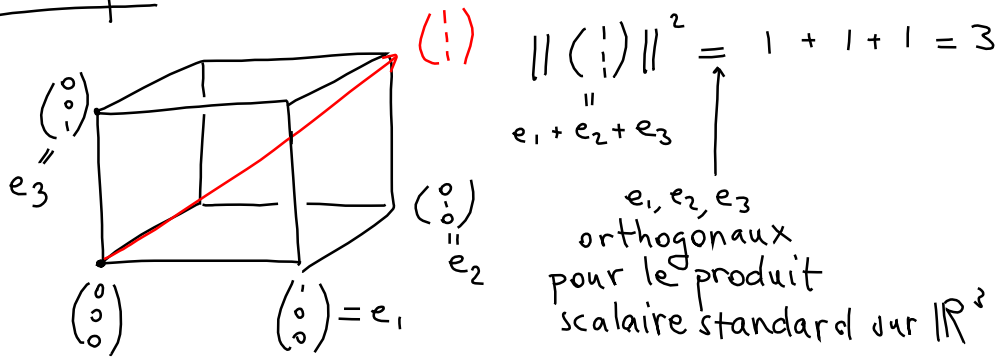 (1 1 1)
(0 0 1) = e₃
(0 1 0) = e₂
(0 0 0)
(1 0 0) = e₁
‖(1 1 1)‖² = 1 + 1 + 1 = 3
=
e₁ + e₂ + e₃
e₁, e₂, e₃
orthogonaux
pour le produit
scalaire standard sur ℝ³